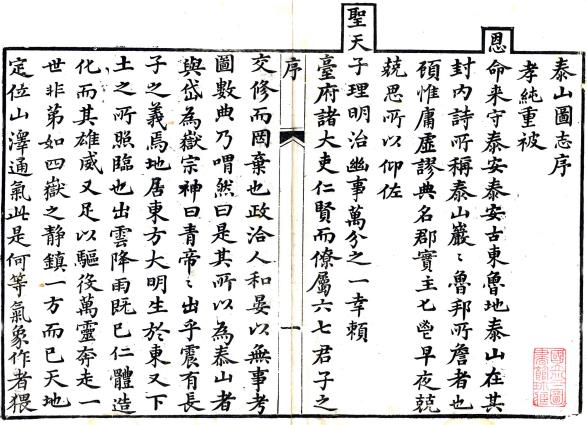 泰山圖志序
孝純重被
恩命来守泰安泰安古東魯地泰山在其
封内詩所稱泰山巖〻魯邦所詹者也
顧惟庸虛謬典名郡實主匕鬯早夜兢
兢思所以仰佐
聖天子理明治幽事萬分之一幸賴
臺府諸大吏仁賢而僚屬六七君子之
序
一
交修而罔棄也政洽人和晏以無事考
圖數典乃喟然曰是其所以為泰山者
與岱為嶽宗神曰青帝〻出乎震有長
子之義焉地居東方大明生於東又下
土之所照臨也出雲降雨既已仁體造
化而其雄威又足以驅役萬靈奔走一
世非第如四嶽之静鎮一方而已天地
定位山澤通氣此是何等氣象作者猥